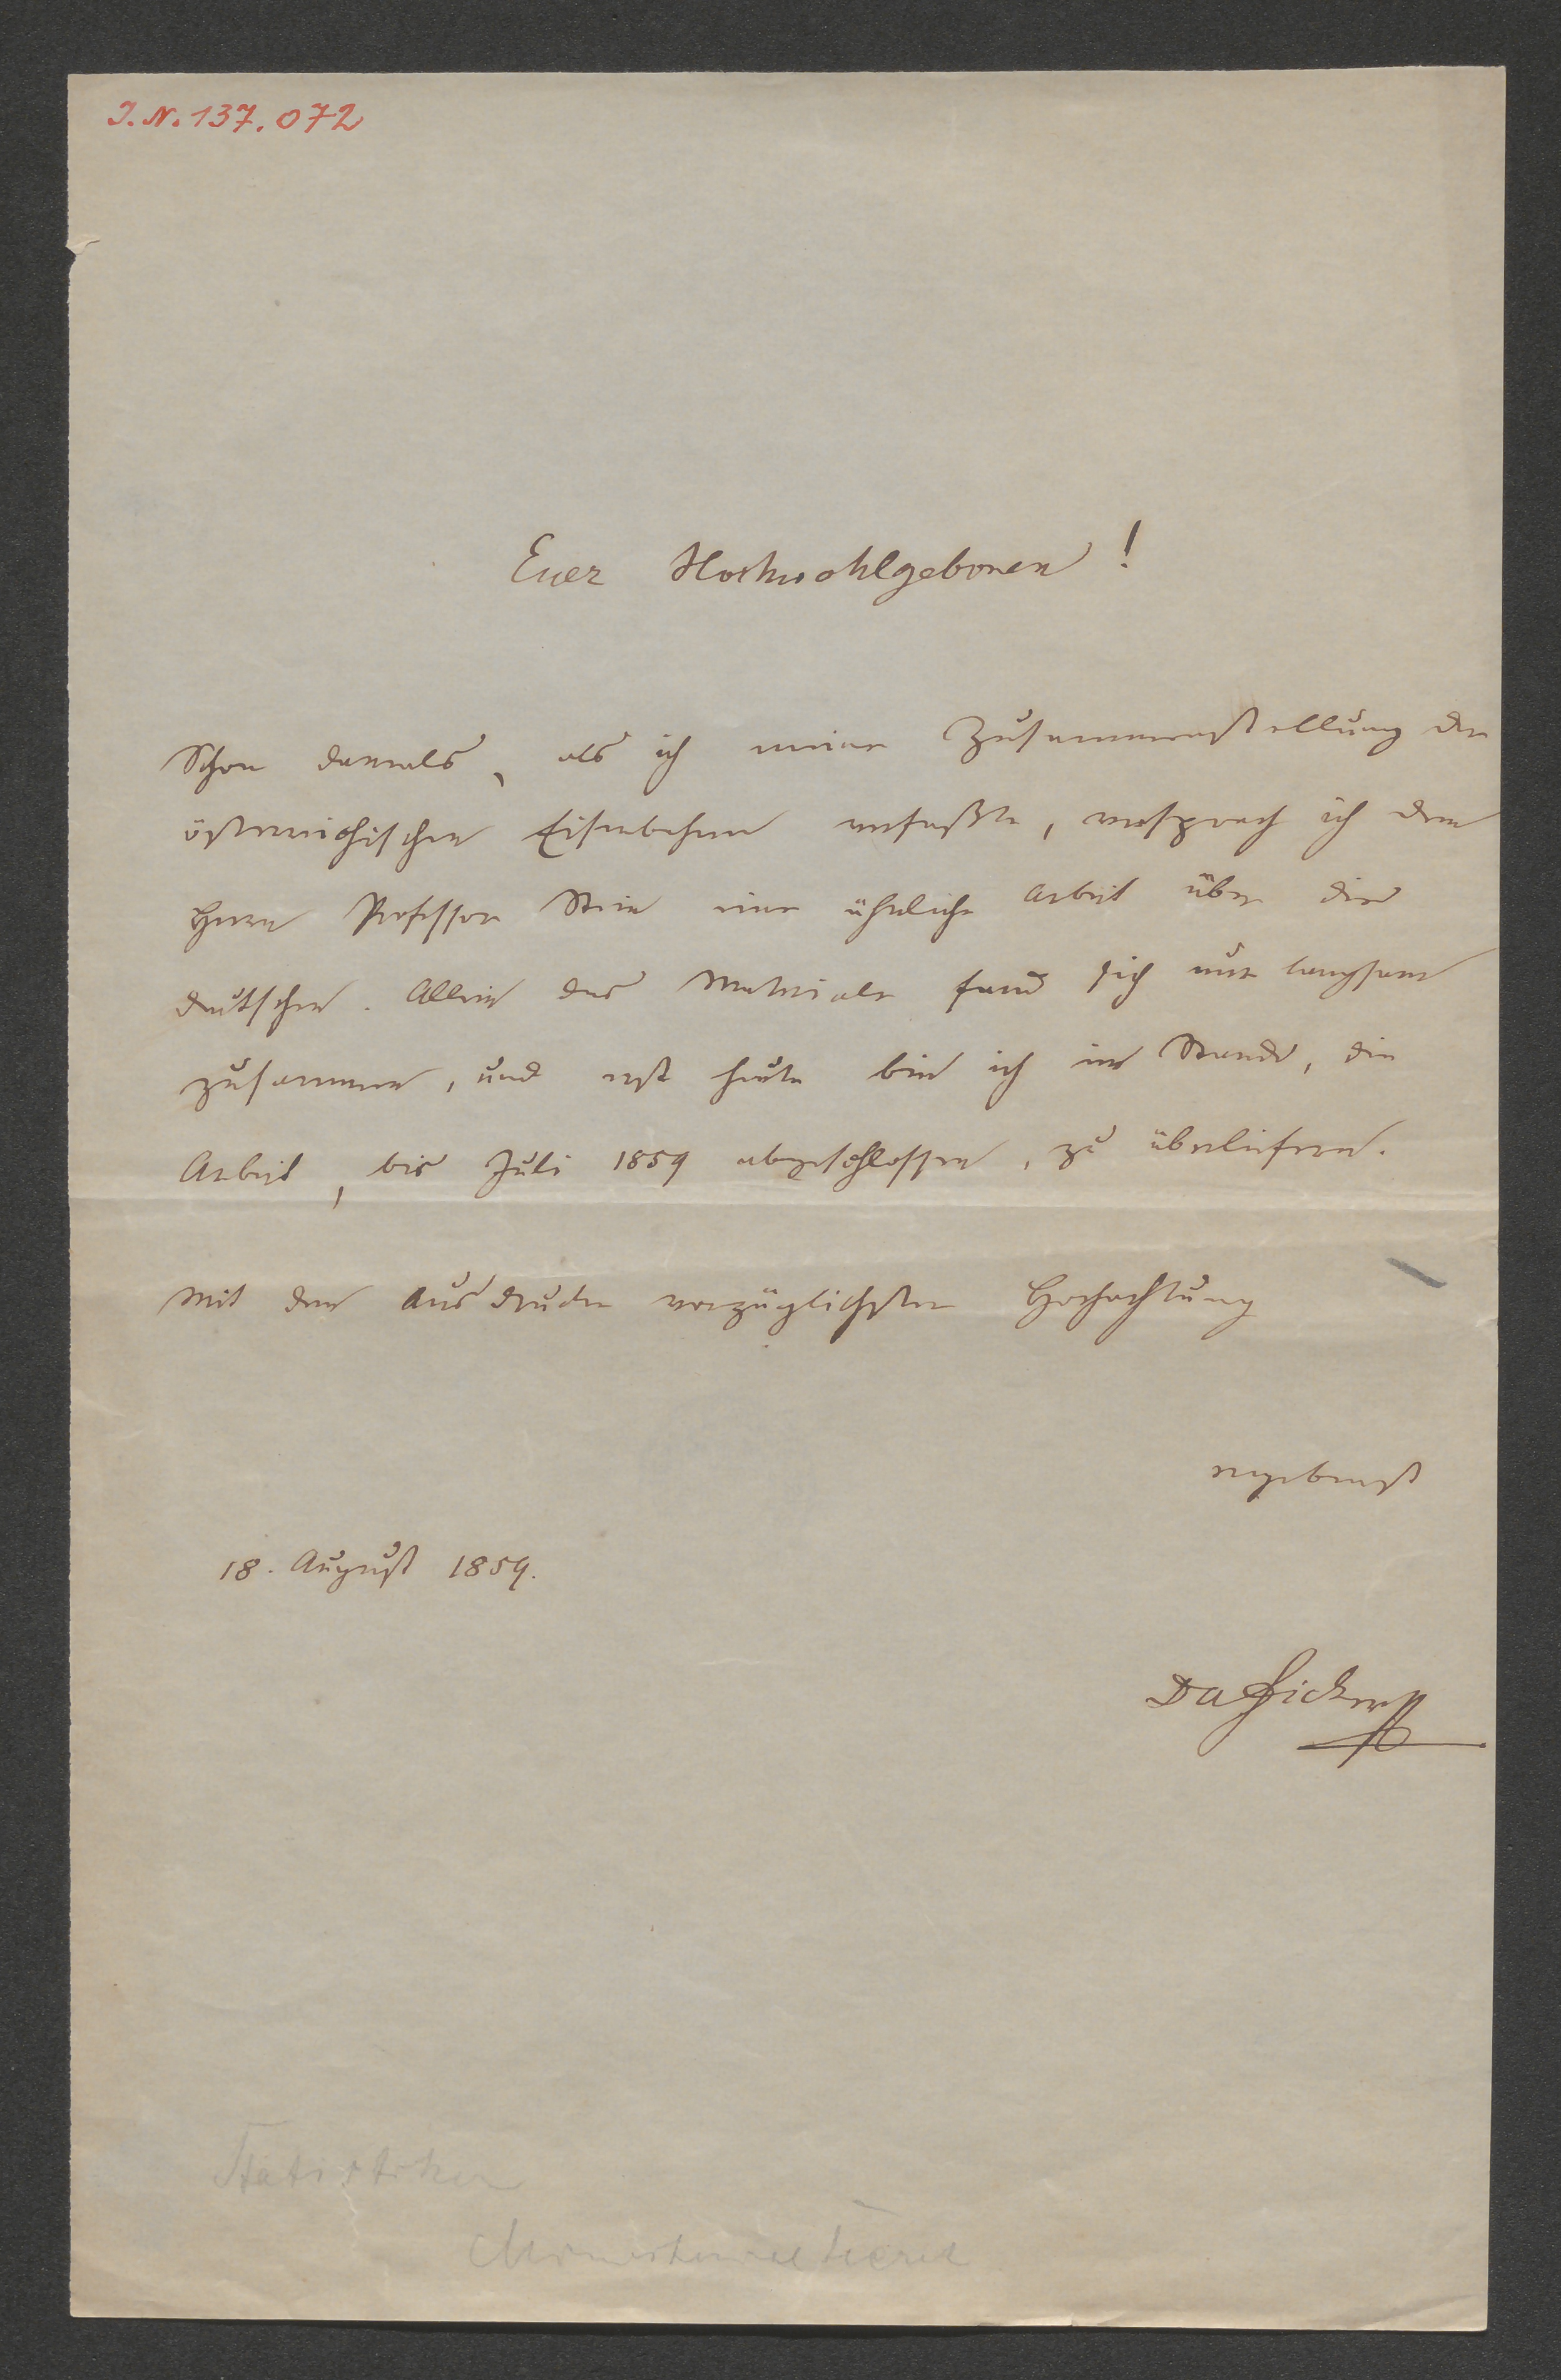 I. N. 137.072
Euer Hochwohlgeboren!
Schon damals, als ich meine Zusammenstellung der
österreichischen Eisenbahnen verfaßte, versprach ich dem
Herrn Professor Stein eine ähnliche Arbeit über die
deutschen. Allein das Materiale fand sich nur langsam
zusammen, und erst heute bin ich im Stande, die
Arbeit, bis Juli 1859 abgeschlossen, zu überliefern.
Mit dem Ausdrucke vorzüglichster Hochachtung
ergebenst
18. August 1859.
Dr A Ficker
Statistiker